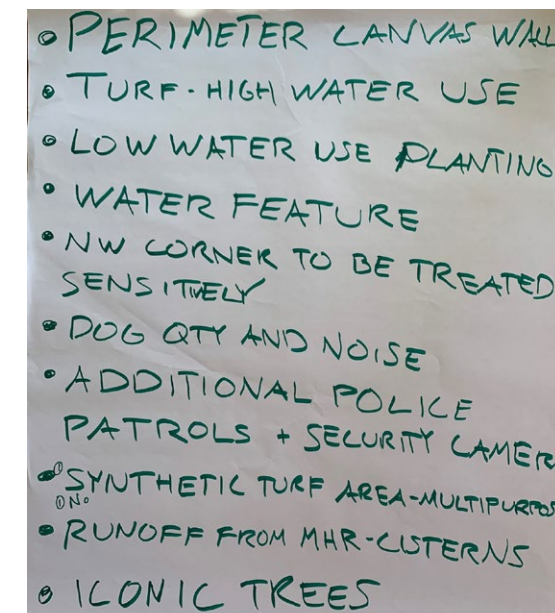 • PERIMETER CANVAS WALL
• TURF - HIGH WATER USE
• LOW WATER USE PLANTING
• WATER FEATURE
• NW CORNER TO BE TREATED
SENSITIVELY
• DOG QTY AND NOISE
• ADDITIONAL POLICE
PATROLS + SECURITY CAMER
• SYNTHETIC TURF AREA-MULTIPURPOS
NO
• RUNOFF FROM MHR-CISTERNS
• ICONIC TREES